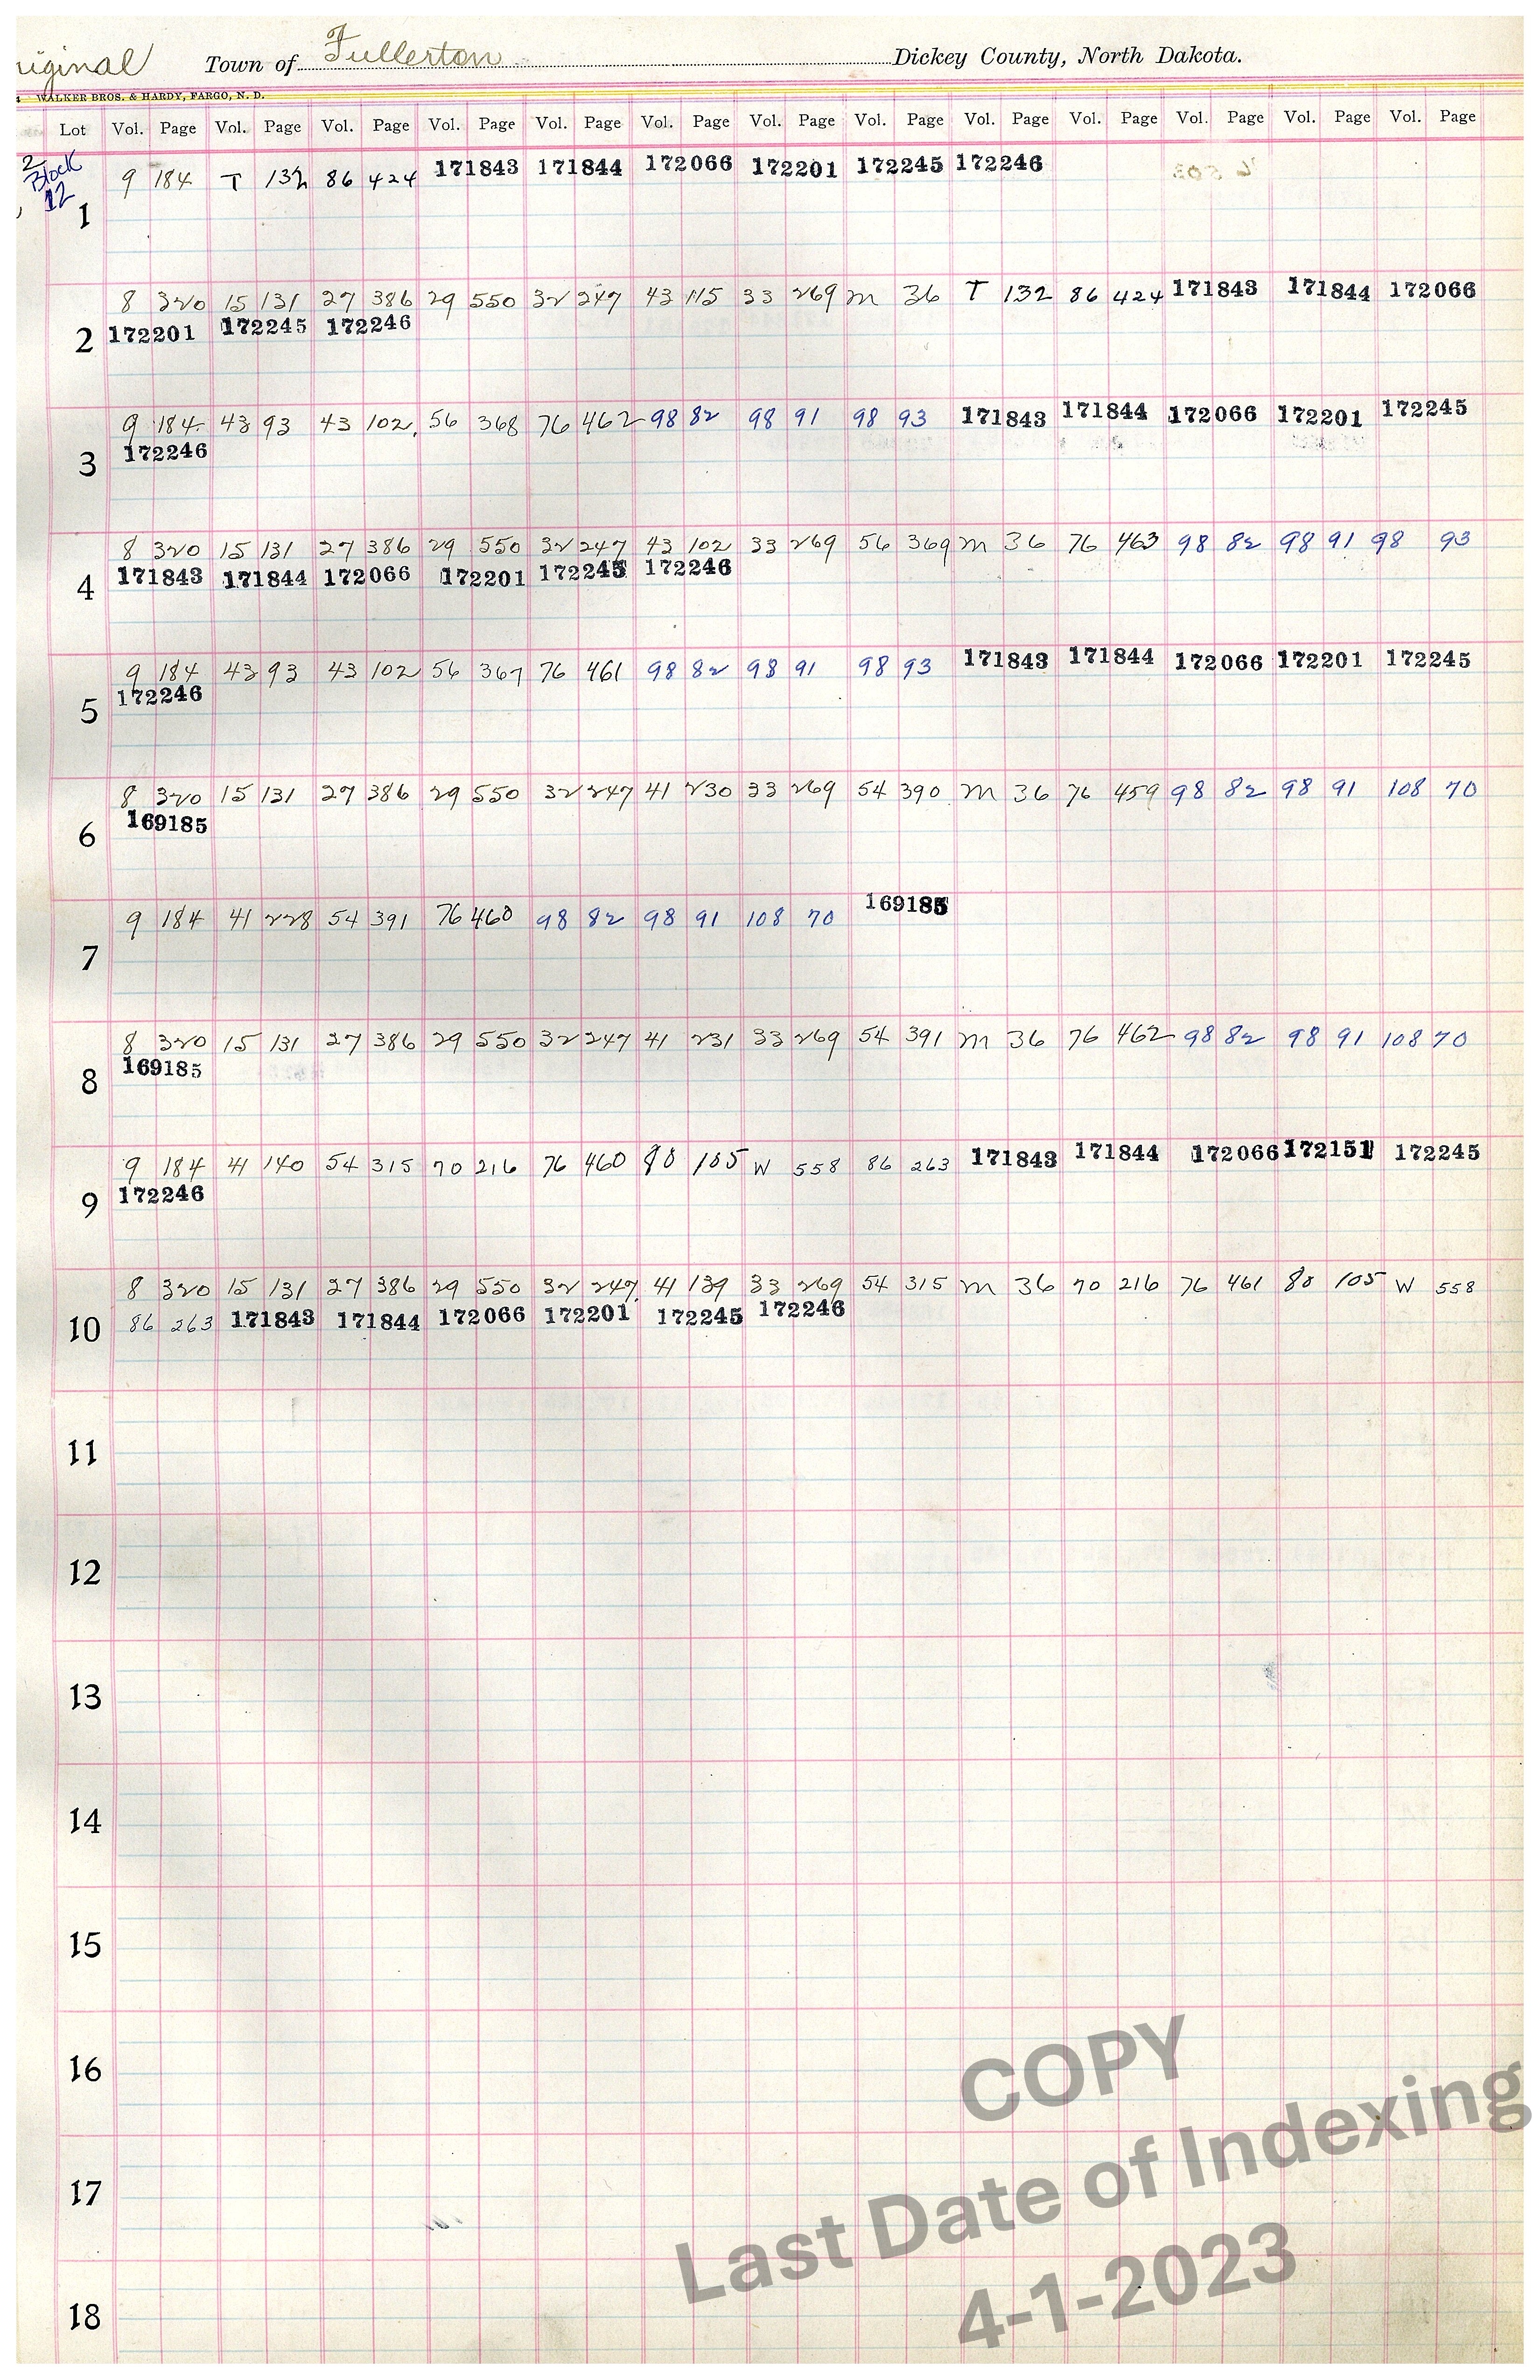 riginal Town of Fullerton Dickey County, North Dakota.
WALKER BROS. & HARDY, FARGO, N. D.
Lot Vol. Page Vol. Page Vol. Page Vol. Page Vol. Page Vol. Page Vol. Page Vol. Page Vol. Page Vol. Page Vol. Page Vol. Page Vol. Page
2
Block
12
9 184 T 132 86 424 171843 171844 172066 172201 172245 172246
1
8 320 15 131 27 386 29 550 32 247 43 115 33 269 m 36 T 132 86 424 171843 171844 172066
2 172201 172245 172246
9 184 43 93 43 102 56 368 76 462 98 82 98 91 98 93 171843 171844 172066 172201 172245
3 172246
8 320 15 131 27 386 29 550 32 247 43 102 33 269 56 369 m 36 76 463 98 82 98 91 98 93
4 171843 171844 172066 172201 172245 172246
9 184 43 93 43 102 56 367 76 461 98 82 98 91 98 93 171843 171844 172066 172201 172245
5 172246
8 320 15 131 27 386 29 550 32 247 41 230 33 269 54 390 m 36 76 459 98 82 98 91 108 70
6 169185
9 184 41 228 54 391 76 460 98 82 98 91 108 70 169185
7
8 320 15 131 27 386 29 550 32 247 41 231 33 269 54 391 m 36 76 462 98 82 98 91 108 70
8 169185
9 184 41 140 54 315 70 216 76 460 80 105 W 558 86 263 171843 171844 172066 172151 172245
9 172246
8 320 15 131 27 386 29 550 32 247 41 139 33 269 54 315 m 36 70 216 76 461 80 105 W 558
10 86 263 171843 171844 172066 172201 172245 172246
11
12
13
14
15
16
17
18
COPY
Last Date of Indexing
4-1-2023